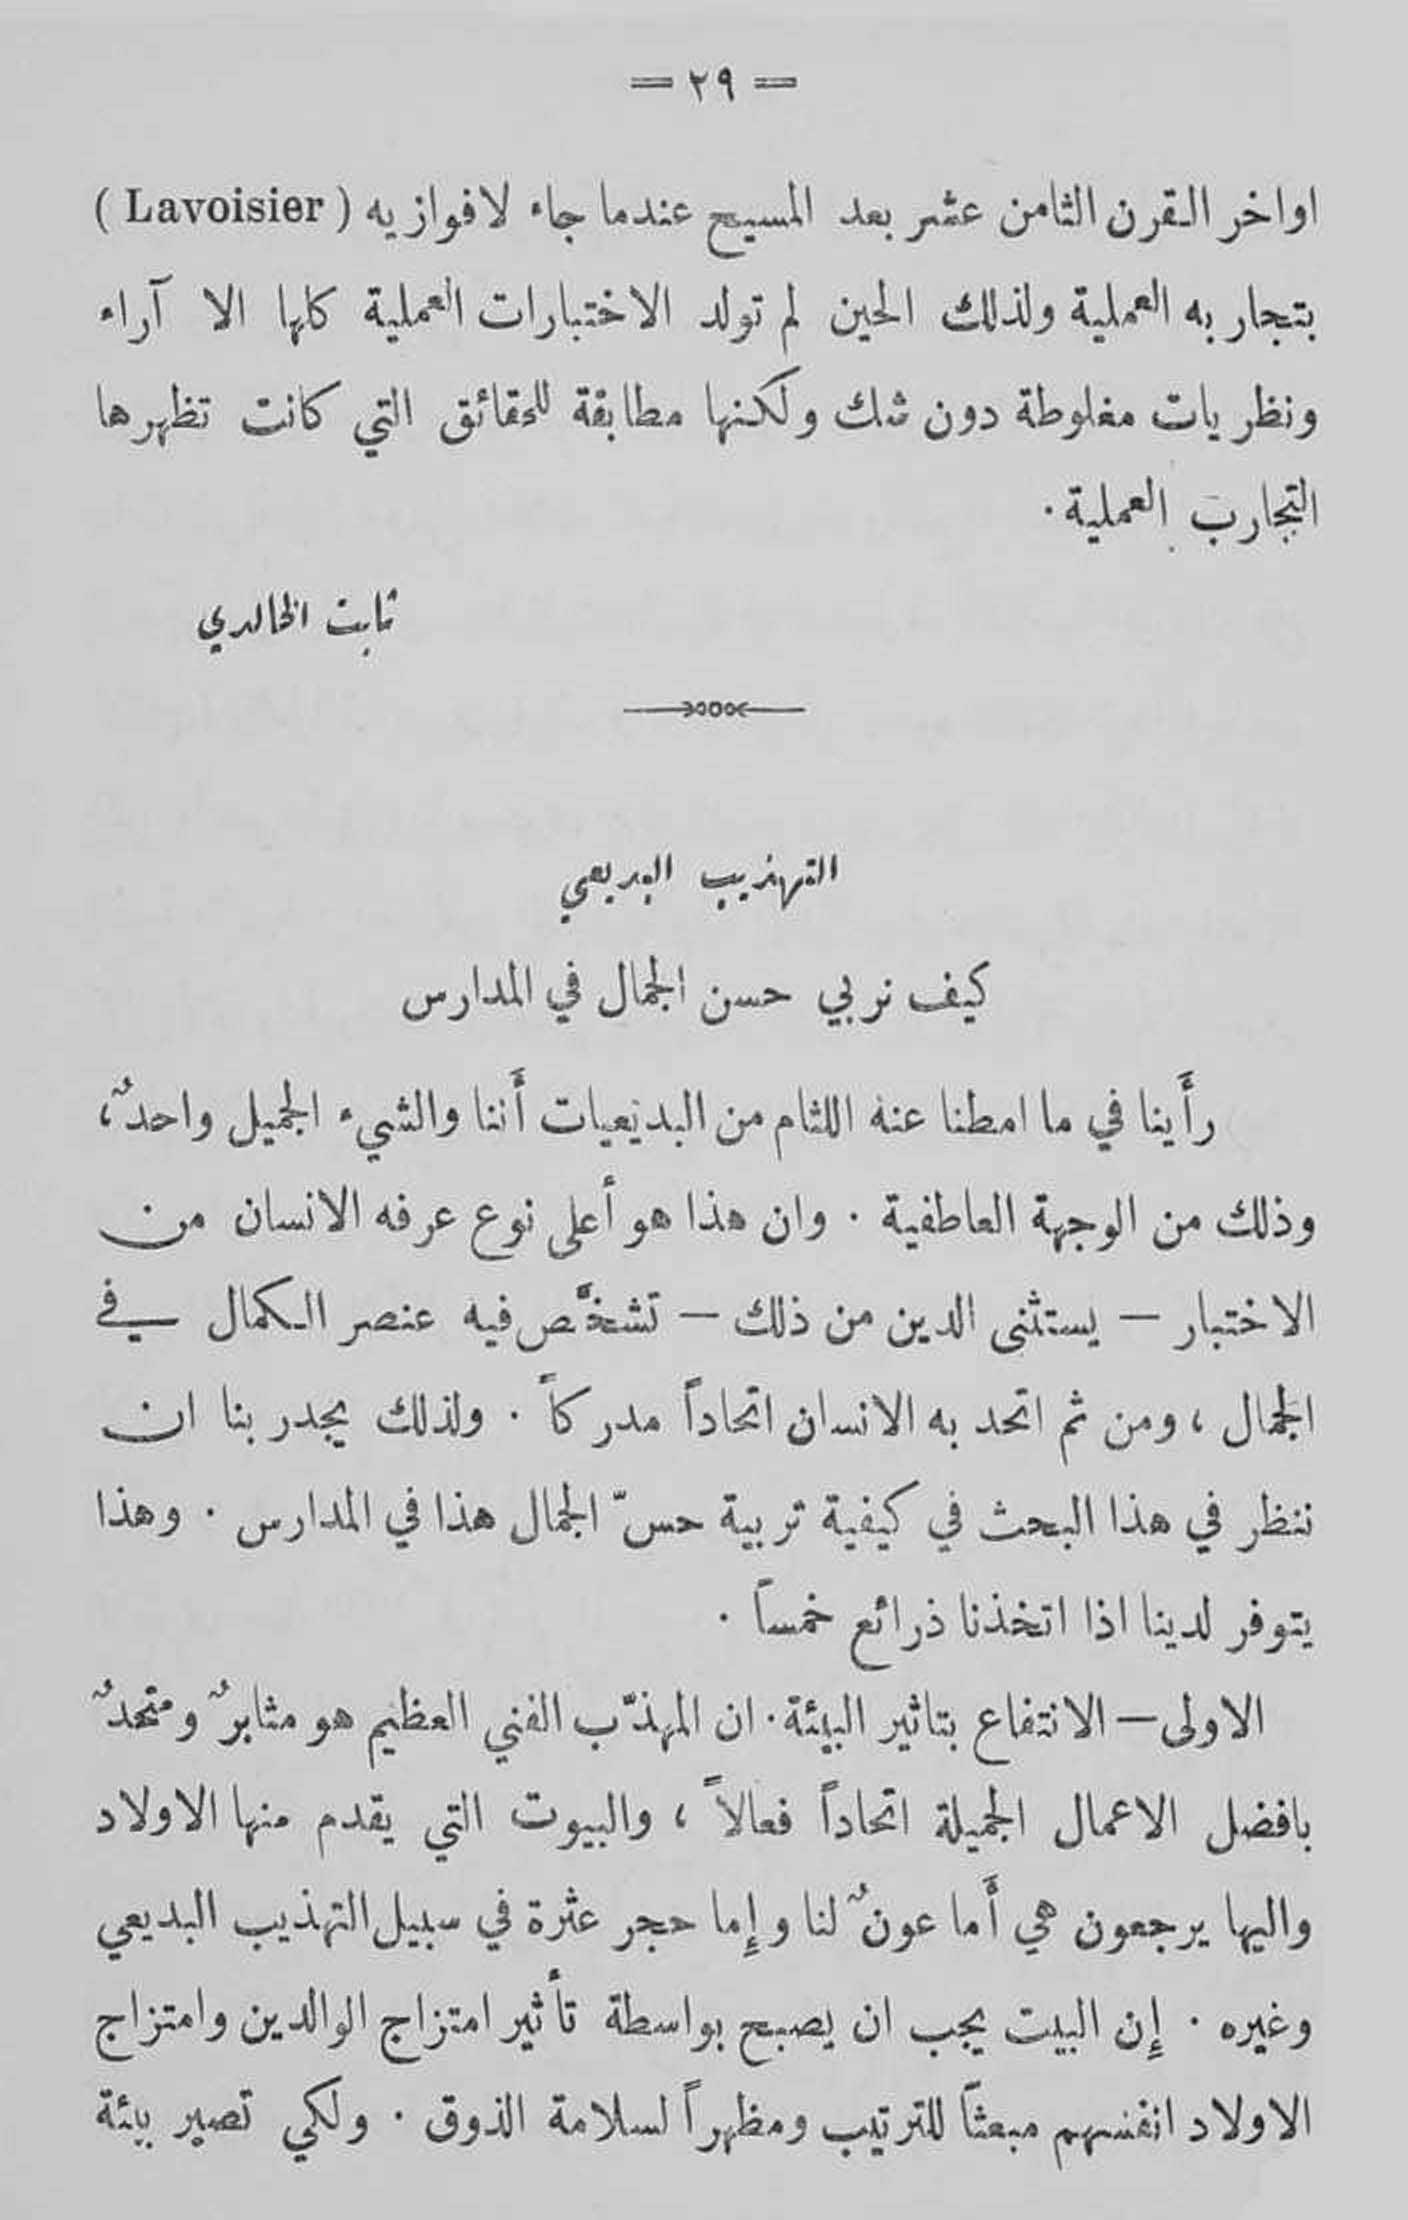 = ٢٩ =
اواخر القرن الثامن عشر بعد المسيح عندما جاء لافوازيه ( Lavoisier )
بتجاربه العملية ولذلك الحين لم تولد الاختبارات العملية كلها الا آراء
ونظريات مغلوطة دون شك ولكنها مطابقة للحقائق التي كانت تظهرها
التجارب العملية .
ثابت الخالدي
التهذيب البديعي
كيف نربي حسن الجمال في المدارس
رأَينا في ما امطنا عنه اللثام من البديعيات أَننا والشيء الجميل واحدٌ ،
وذلك من الوجهة العاطفية . وان هذا هو أعلى نوع عرفه الانسان من
الاختبار – يستثنى الدين من ذلك – تشخَّص فيه عنصر الكمال في
الجمال ، ومن ثم اتحد به الانسان اتحاداً مدركاً . ولذلك يجدر بنا ان
ننظر في هذا البحث في كيفية تربية حسّ الجمال هذا في المدارس . وهذا
يتوفر لدينا اذا اتخذنا ذرائع خمساً .
الاولى – الانتفاع بتاثير البيئة . ان المهذّب الفني العظيم هو مثابرٌ ومتحدٌ
بافضل الاعمال الجميلة اتحاداً فعالاً ، والبيوت التي يقدم منها الاولاد
واليها يرجعون هي أَما عونٌ لنا وإِما حجر عثرة في سبيل التهذيب البديعي
وغيره . إِن البيت يجب ان يصبح بواسطة تأثير امتزاج الوالدين وامتزاج
الاولاد انفسهم مبعثاً للترتيب ومظهراً لسلامة الذوق . ولكي تصير بيئة